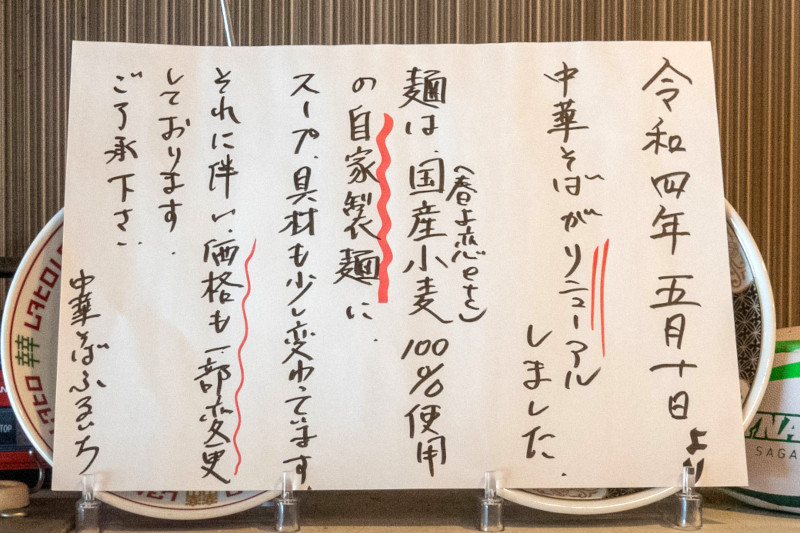 令和四年 五月十日より
中華そばがリニューアル
しました.
(春よ恋etc)
麺は、国産小麦100%使用
の自家製麺に.
スープ、具材も少し変わっています.
それに伴い、価格も一部変更
しております.
ご了承下さい.
中華そばふるいち
NA
SAGA
TOP